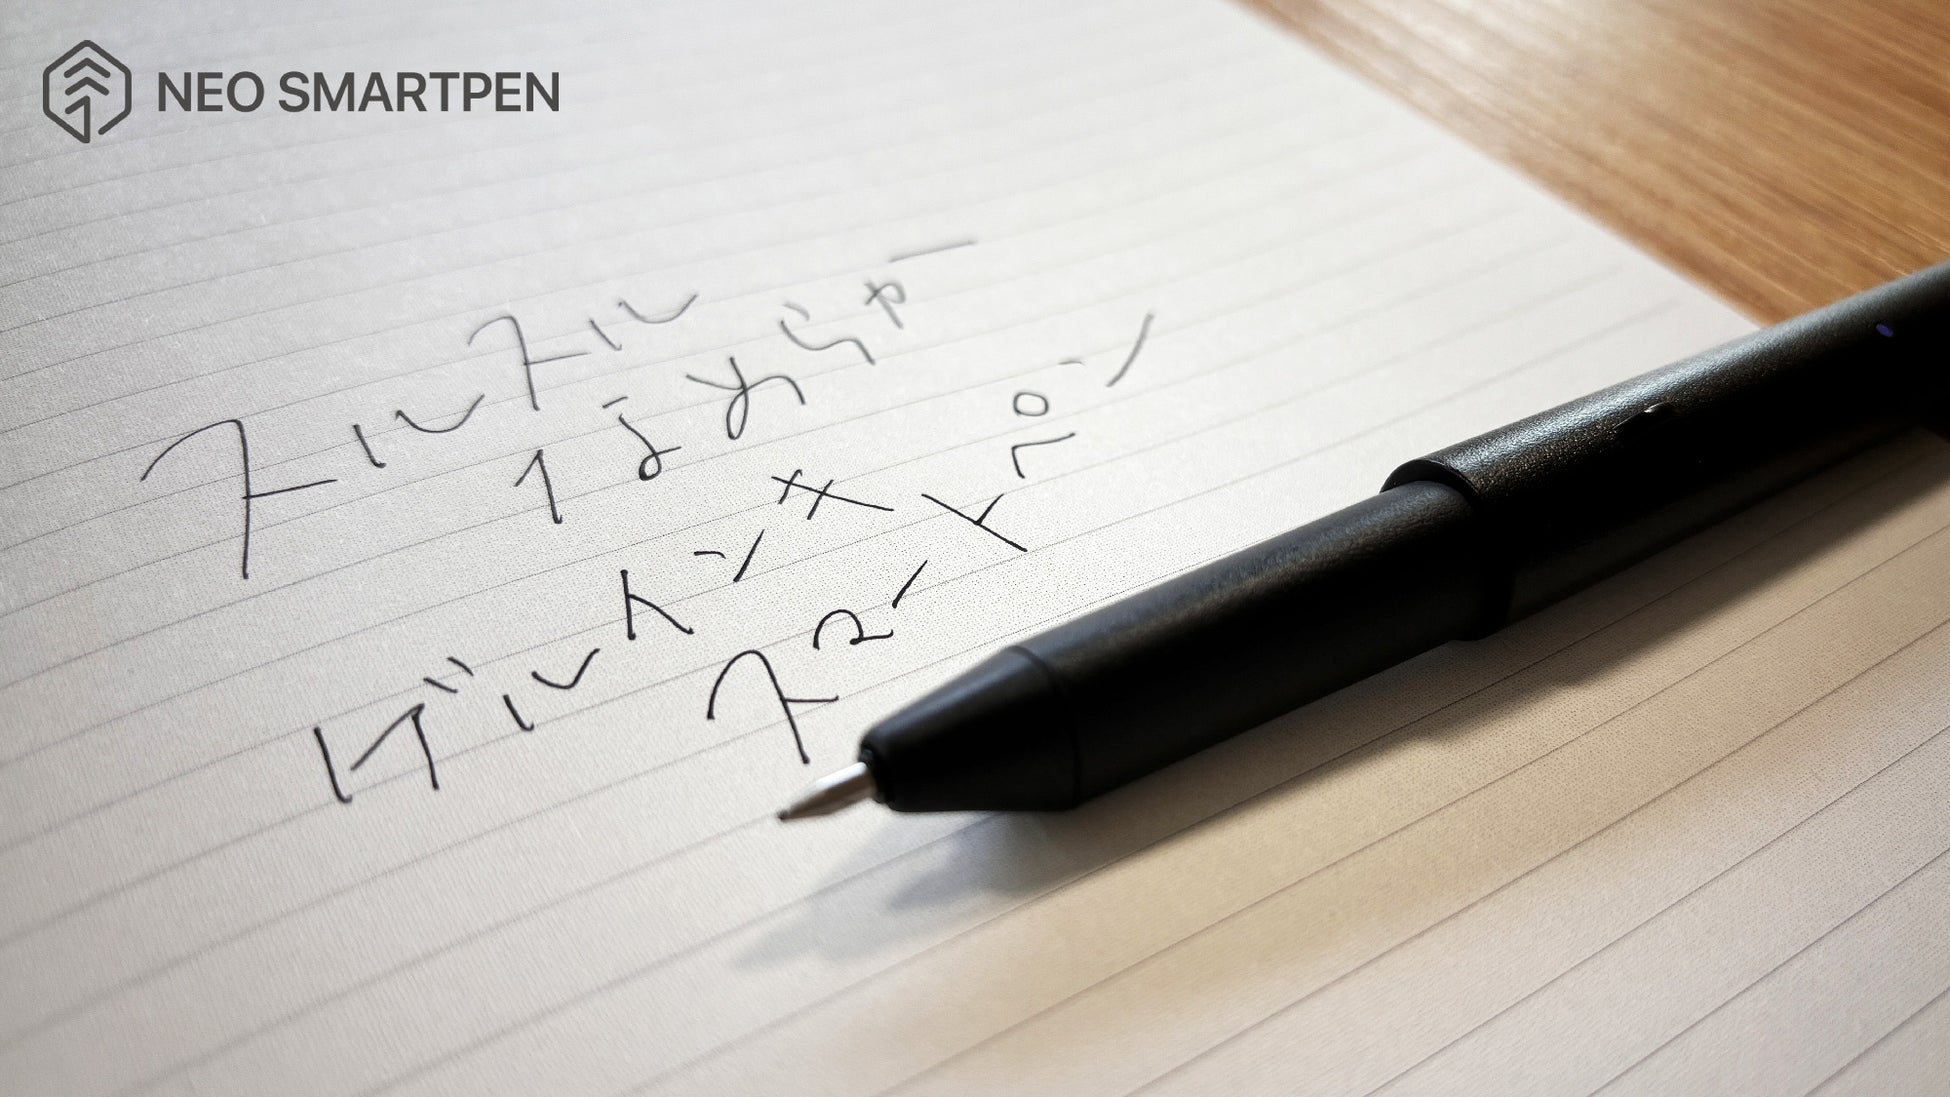 NEO SMARTPEN
スルスル
ゲルインキ
スマートペン